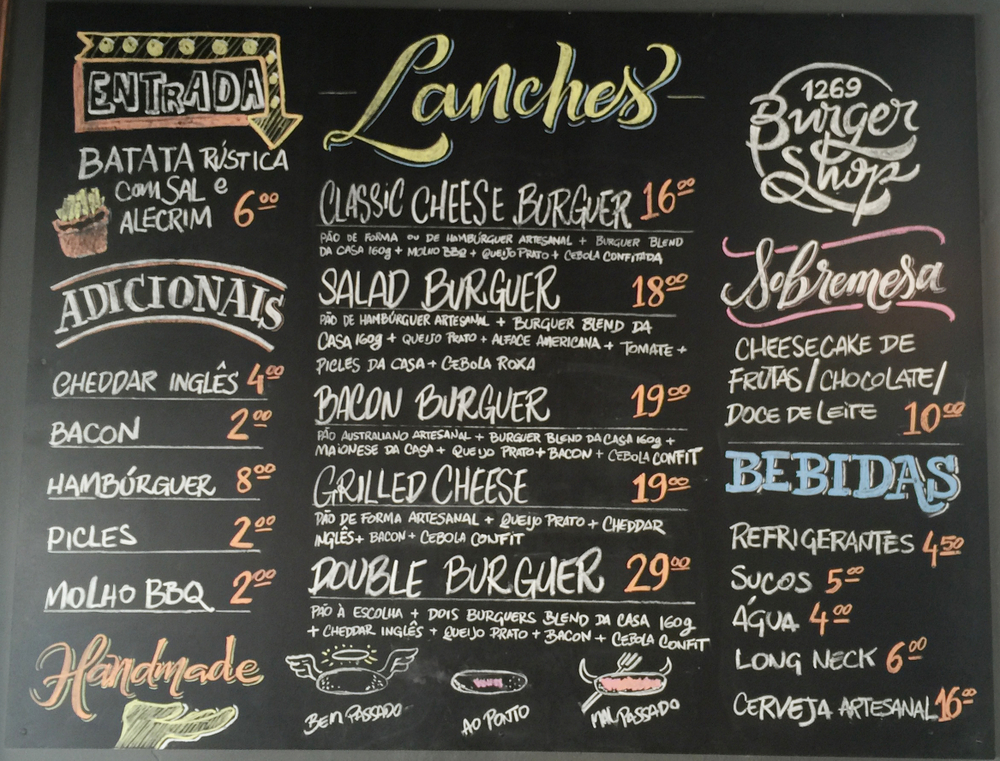 ENTRADA
BATATA RÚSTICA
COM SAL e
ALECRIM 6⁰⁰
ADICIONAIS
CHEDDAR INGLÊS 4⁰⁰
BACON 2⁰⁰
HAMBÚRGUER 8⁰⁰
PICLES 2⁰⁰
MOLHO BBQ 2⁰⁰
Handmade
Lanches
CLASSIC CHEESE BURGUER 16⁰⁰
PÃO DE FORMA OU DE HAMBÚRGUER ARTESANAL + BURGUER BLEND
DA CASA 160g + MOLHO BBQ + QUEIJO PRATO + CEBOLA CONFITADA
SALAD BURGUER 18⁰⁰
PÃO DE HAMBÚRGUER ARTESANAL + BURGUER BLEND DA
CASA 160g + QUEIJO PRATO + ALFACE AMERICANA + TOMATE +
PICLES DA CASA + CEBOLA ROXA
BACON BURGUER 19⁰⁰
PÃO AUSTRALIANO ARTESANAL + BURGUER BLEND DA CASA 160g +
MAIONESE DA CASA + QUEIJO PRATO + BACON + CEBOLA CONFIT
GRILLED CHEESE 19⁰⁰
PÃO DE FORMA ARTESANAL + QUEIJO PRATO + CHEDDAR
INGLÊS + BACON + CEBOLA CONFIT
DOUBLE BURGUER 29⁰⁰
PÃO À ESCOLHA + DOIS BURGUERS BLEND DA CASA 160g
+ CHEDDAR INGLÊS + QUEIJO PRATO + BACON + CEBOLA CONFIT
BEM PASSADO
AO PONTO
MAL PASSADO
1269
Burger
Shop
Sobremesa
CHEESECAKE DE
FRUTAS / CHOCOLATE /
DOCE DE LEITE 10⁰⁰
BEBIDAS
REFRIGERANTES 4⁵⁰
SUCOS 5⁰⁰
ÁGUA 4⁰⁰
LONG NECK 6⁰⁰
CERVEJA ARTESANAL 16⁰⁰